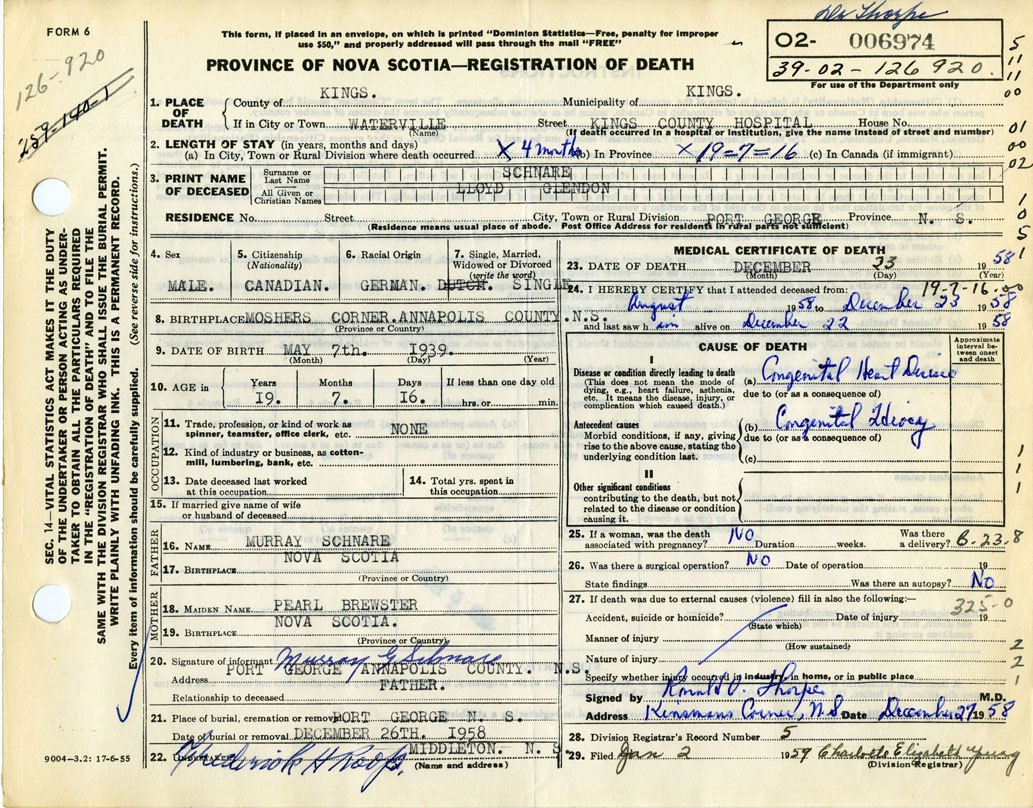 Dr Thorpe
FORM 6
This form, if placed in an envelope, on which is printed "Dominion Statistics—Free, penalty for improper
use $50," and properly addressed will pass through the mail "FREE"
O2- 006974
39-02-126920.
For use of the Department only
126-920
257-140-1
PROVINCE OF NOVA SCOTIA—REGISTRATION OF DEATH
1. PLACE OF DEATH
County of KINGS. Municipality of KINGS.
If in City or Town WATERVILLE Street KINGS COUNTY HOSPITAL House No.
(Name) (If death occurred in a hospital or Institution, give the name instead of street and number)
2. LENGTH OF STAY (in years, months and days)
(a) In City, Town or Rural Division where death occurred X 4 months (b) In Province X 19=7=16 (c) In Canada (if immigrant)
3. PRINT NAME OF DECEASED
Surname or Last Name SCHNARE
All Given or Christian Names LLOYD GLENDON
RESIDENCE No. Street City, Town or Rural Division PORT GEORGE Province N. S.
(Residence means usual place of abode. Post Office Address for residents in rural parts not sufficient)
4. Sex MALE.
5. Citizenship (Nationality) CANADIAN.
6. Racial Origin GERMAN. DUTCH.
7. Single, Married, Widowed or Divorced (write the word) SINGLE
8. BIRTHPLACE MOSHERS CORNER.ANNAPOLIS COUNTY.N.S.
(Province or Country)
9. DATE OF BIRTH MAY 7th. 1939.
(Month) (Day) (Year)
10. AGE in Years Months Days If less than one day old
19. 7. 16. hrs. or min.
OCCUPATION
11. Trade, profession, or kind of work as spinner, teamster, office clerk, etc. NONE
12. Kind of industry or business, as cotton-mill, lumbering, bank, etc.
13. Date deceased last worked at this occupation
14. Total yrs. spent in this occupation
15. If married give name of wife or husband of deceased
FATHER
16. NAME MURRAY SCHNARE
17. BIRTHPLACE NOVA SCOTIA
(Province or Country)
MOTHER
18. MAIDEN NAME PEARL BREWSTER
19. BIRTHPLACE NOVA SCOTIA.
(Province or Country)
20. Signature of informant Murray G Schnare
Address PORT GEORGE ANNAPOLIS COUNTY. N.S.
Relationship to deceased FATHER.
21. Place of burial, cremation or removal PORT GEORGE N. S.
Date of burial or removal DECEMBER 26TH. 1958
22. UNDERTAKER Frederick H Roop. MIDDLETON. N. S.
(Name and address)
MEDICAL CERTIFICATE OF DEATH
23. DATE OF DEATH DECEMBER 23 1958
(Month) (Day) (Year)
24. I HEREBY CERTIFY that I attended deceased from: 19-7-16
August 1958 to December 23 1958
and last saw him alive on December 22 1958
CAUSE OF DEATH
Approximate interval between onset and death
I
Disease or condition directly leading to death
(This does not mean the mode of dying, e.g., heart failure, asthenia, etc. It means the disease, injury, or complication which caused death.)
(a) Congenital Heart Disease
due to (or as a consequence of)
Antecedent causes
Morbid conditions, if any, giving rise to the above cause, stating the underlying condition last.
(b) Congenital Idiocy
due to (or as a consequence of)
(c)
II
Other significant conditions
contributing to the death, but not related to the disease or condition causing it.
25. If a woman, was the death associated with pregnancy? No Duration weeks. Was there a delivery? 6-23-8
26. Was there a surgical operation? No Date of operation 19
State findings Was there an autopsy? No
27. If death was due to external causes (violence) fill in also the following:—
325-0
Accident, suicide or homicide? Date of injury 19
(State which)
Manner of injury
(How sustained)
Nature of injury
Specify whether injury occurred in industry, in home, or in public place
Signed by Ronald V. Thorpe M.D.
Address Kinsmans Corner, N.S Date December 27 1958
28. Division Registrar's Record Number 5
29. Filed Jan 2 1959 Charlotte Elizabeth Young
(Division Registrar)
SEC. 14—VITAL STATISTICS ACT MAKES IT THE DUTY
OF THE UNDERTAKER OR PERSON ACTING AS UNDER-
TAKER TO OBTAIN ALL THE PARTICULARS REQUIRED
IN THE "REGISTRATION OF DEATH" AND TO FILE THE
SAME WITH THE DIVISION REGISTRAR WHO SHALL ISSUE THE BURIAL PERMIT.
WRITE PLAINLY WITH UNFADING INK. THIS IS A PERMANENT RECORD.
Every item of information should be carefully supplied. (See reverse side for instructions.)
9004—3.2: 17-6-55
5
11
11
00
01
00
02
1
0
5
1
1
1
1
2
2
1